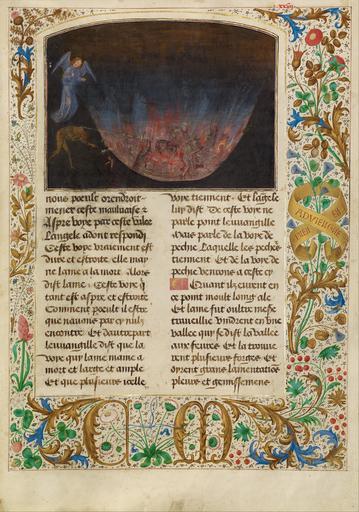 nous poeult orendroit
mener ceste mauluaise &
Aspre voye par ceste valee
Langele adont respondi
Ceste voye vraiement est
dure et estroite elle may
ne lame a la mort. Alors
dist lame. Ceste voye qui
tant est aspre et estroite
Comment poeult il estre
que nauons par cy nully
encontre. Et dautrepart
leuuangille dist que la
voye qui lame maine a
mort est large et ample
Et que plusieurs icelle
voye tiennent. Et langele
luy dist. De ceste voye ne
parle point leuuangille
Mais parle de la voye de
pechie Laquelle les pecheurs
tiennent. Et de la voye de
pechie venons a ceste cy
Quant ilz eurent en
ce point moult longt ale
Et lame fut oultre mesure
traueillie vindrent en une
vallee qui se dist la vallee
aux feures. Et la trouue
rent plusieurs forges. Et
oyrent grans lamentations
pleurs et gemissemens
C M